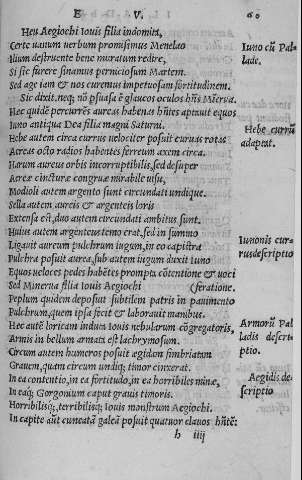 E V. 60
Heu Aegiochi Iouis filia indomita,
Certe uanum uerbum promisimus Menelao
Ilium destruente bene muratum redire,
Si sic furere sinamus perniciosum Martem.
Sed age iam & nos curemus impetuosam fortitudinem.
Sic dixit. neq; nõ pṡuasa ẽ glaucos oculos hñs Mĩerua.
Hec quidẽ percurrẽs aureas habenas hñtes aptauit equos
Iuno antiqua Dea filia magni Saturni.
Hebe autem circa currus uelociter posuit curuas rotas
Aereas octo radios habentes ferreum axem circa.
Harum aureus orbis incorruptibilis, sed desuper
Aereæ cincturæ congruæ mirabile uisu,
Modioli autem argento sunt circundati undique.
Sella autem aureis & argenteis loris
Extensa est, duo autem circundati ambitus sunt.
Huius autem argenteus temo erat, sed in summo
Ligauit aureum pulchrum iugum, in eo capistra
Pulchra posuit aurea, sub autem iugum duxit Iuno
Equos ueloces pedes habẽtes prompta cõtentione & uoci
Sed Minerua filia Iouis Aegiochi (feratione.
Peplum quidem deposuit subtilem patris in pauimento
Pulchrum, quem ipsa fecit & laborauit manibus.
Hec autẽ loricam induta Iouis nebularum cõgregatoris,
Armis in bellum armata est lachrymosum.
Circum autem humeros posuit ægidem fimbriatam
Grauem, quam circum undiq; timor cinxerat.
In ea contentio, in ea fortitudo, in ea horribiles minæ,
In eaq; Gorgonium caput grauis timoris.
Horribilisq;, terribilisq; Iouis monstrum Aegiochi.
In capite aũt cuneatã galeã posuit quatuor clauos hñtẽ:
h iiij
Iuno cũ Pal-
lade.
Hebe currũ
adaptat.
Iunonis cur-
rus descriptio
Armorũ Pal
ladis descri-
ptio.
Aegidis de-
scriptio